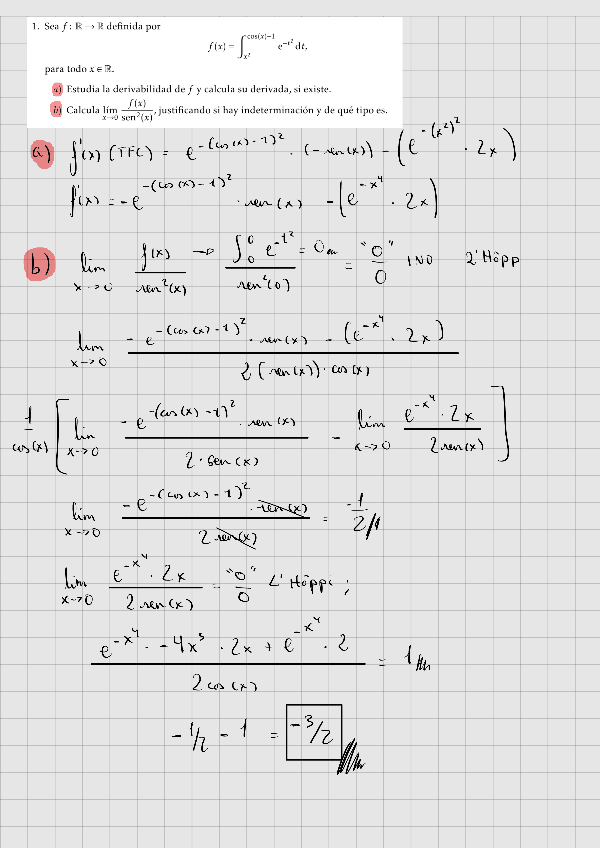 1. Sea f : ℝ → ℝ definida por
f(x) = ∫_{x²}^{cos(x)−1} e^{−t²} dt,
para todo x ∈ ℝ.
a) Estudia la derivabilidad de f y calcula su derivada, si existe.
b) Calcula lím_{x→0} f(x)/sen²(x), justificando si hay indeterminación y de qué tipo es.
a) f'(x) (TFC) = e^{-(cos(x)-1)²} · (-sen(x)) - (e^{-(x²)²} · 2x)
f'(x) = -e^{-(cos(x)-1)²} · sen(x) - (e^{-x⁴} · 2x)
b) lim_{x→0} f(x)/sen²(x) → ∫_0^0 e^{-t²} = 0 / sen²(0) = "0"/0 IND L'Hôpp
lim_{x→0} -e^{-(cos(x)-1)²} · sen(x) - (e^{-x⁴} · 2x) / 2(sen(x)) · cos(x)
1/cos(x) [ lim_{x→0} -e^{-(cos(x)-1)²} · sen(x) / 2 · sen(x) - lim_{x→0} e^{-x⁴} · 2x / 2sen(x) ]
lim_{x→0} -e^{-(cos(x)-1)²} · sen(x) / 2 sen(x) = -1/2
lim_{x→0} e^{-x⁴} · 2x / 2 sen(x) = "0"/0 L'Hôpp ;
e^{-x⁴} · -4x³ · 2x + e^{-x⁴} · 2 / 2 cos(x) = 1
-1/2 - 1 = -3/2